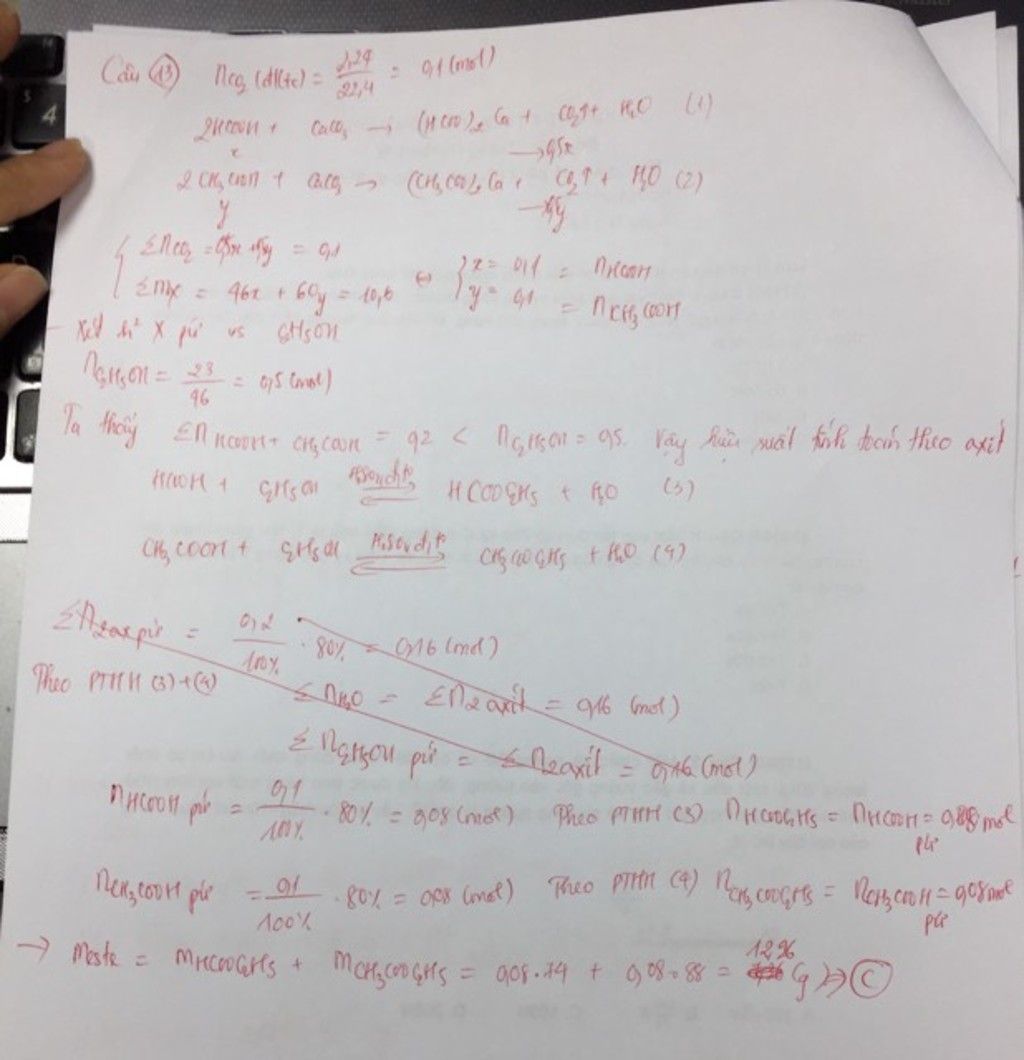 Câu 13 nCO2 (đktc) = 2,24/22,4 = 0,1 (mol)
2HCOOH + CaCO3 → (HCOO)2Ca + CO2↑ + H2O (1)
x → 0,5x
2CH3COOH + CaCO3 → (CH3COO)2Ca + CO2↑ + H2O (2)
y → 0,5y
{ ΣnCO2 = 0,5x + 0,5y = 0,1
Σmx = 46x + 60y = 10,6 ⇔ { x = 0,1 = nHCOOH
y = 0,1 = nCH3COOH
- Xét h² X pứ vs C2H5OH
nC2H5OH = 23/46 = 0,5 (mol)
Ta thấy Σn HCOOH + CH3COOH = 0,2 < nC2H5OH = 0,5. Vậy hiệu suất tính toán theo axit
HCOOH + C2H5OH ⇌ H2SO4 đ, t° HCOOC2H5 + H2O (3)
CH3COOH + C2H5OH ⇌ H2SO4 đ, t° CH3COOC2H5 + H2O (4)
Σn2ax pứ = 0,2/100% . 80% = 0,16 (mol)
Theo PTHH (3)+(4) ΣnH2O = Σn2axit = 0,16 (mol)
ΣnC2H5OH pứ = Σn2axit = 0,16 (mol)
nHCOOH pứ = 0,1/100% . 80% = 0,08 (mol) Theo PTHH (3) nHCOOC2H5 = nHCOOH pứ = 0,08 mol
nCH3COOH pứ = 0,1/100% . 80% = 0,08 (mol) Theo PTHH (4) nCH3COOC2H5 = nCH3COOH pứ = 0,08 mol
→ Meste = mHCOOC2H5 + mCH3COOC2H5 = 0,08.74 + 0,08.88 = 12,96 g ⇒ C